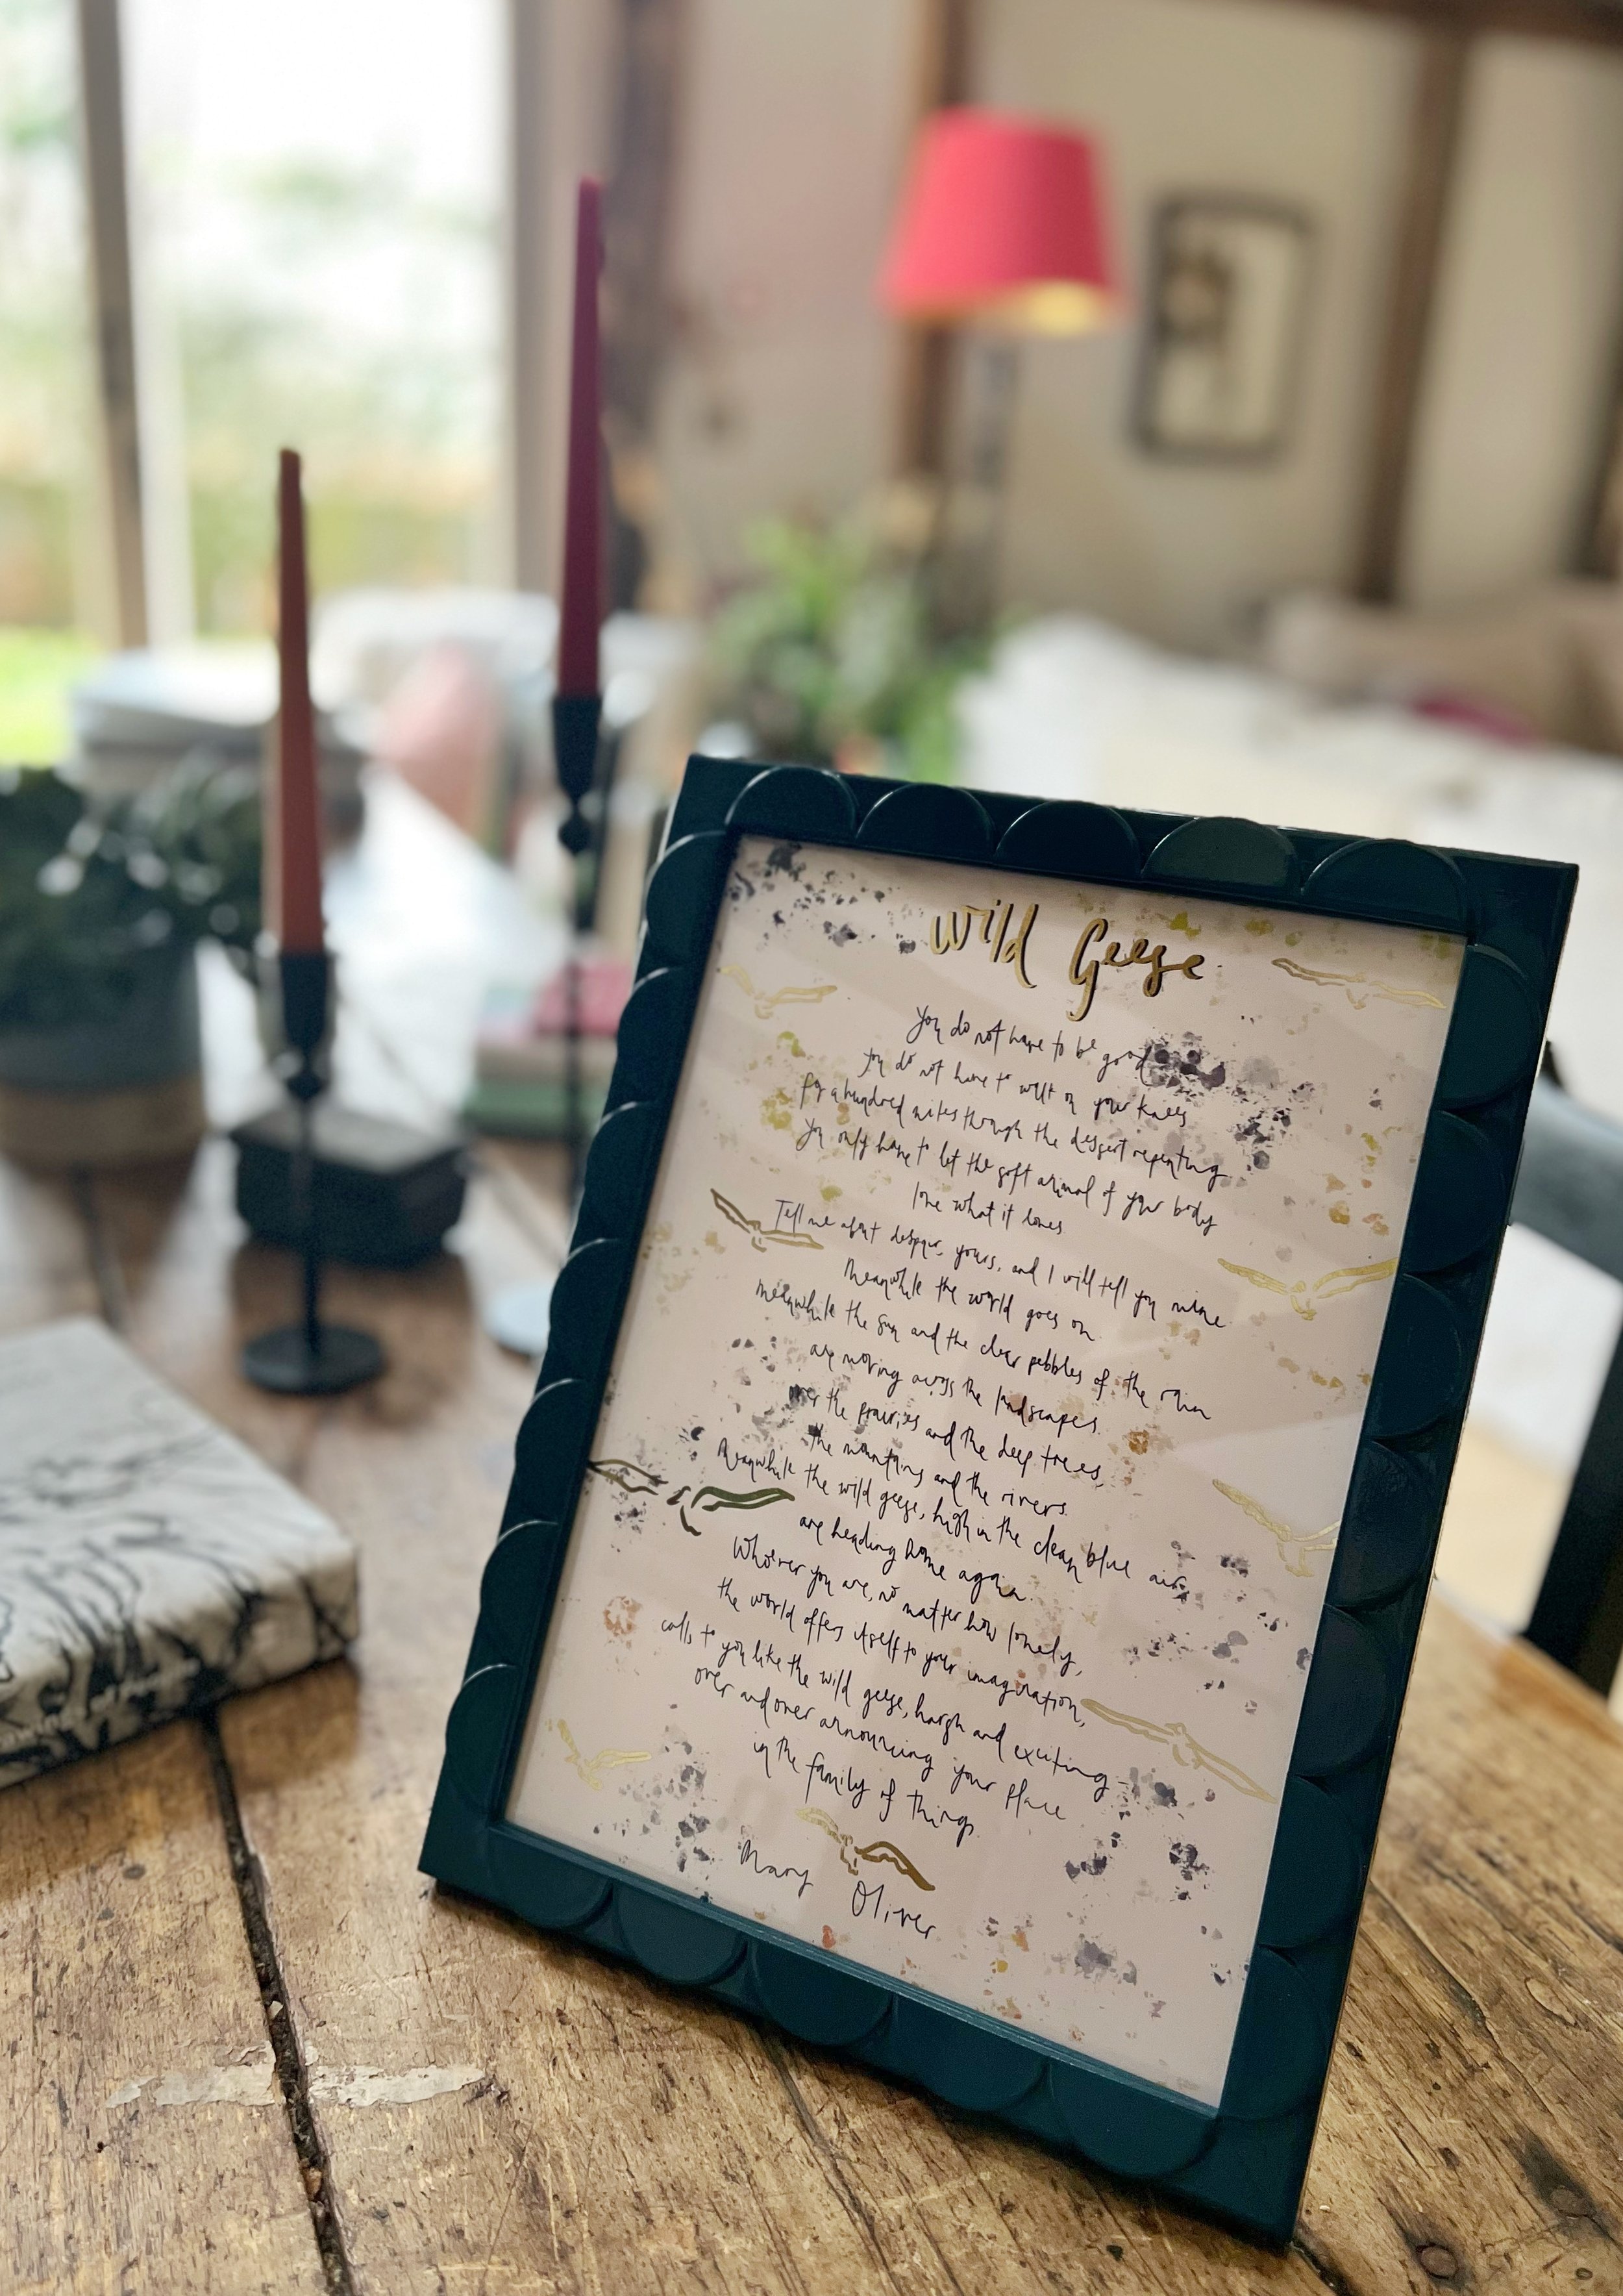 Wild Geese
You do not have to be good
you do not have to walk on your knees
for a hundred miles through the dessert repenting
you only have to let the soft animal of your body
love what it loves.
Tell me about despair, yours, and I will tell you mine
Meanwhile the world goes on.
meanwhile the sun and the clear pebbles of the rain
are moving across the landscapes.
over the prairies and the deep trees,
the mountains and the rivers.
Meanwhile the wild geese, high in the clean blue air,
are heading home again.
Whoever you are, no matter how lonely,
the world offers itself to your imagination,
calls to you like the wild geese, harsh and exciting -
over and over announcing your place
in the family of things
Mary Oliver